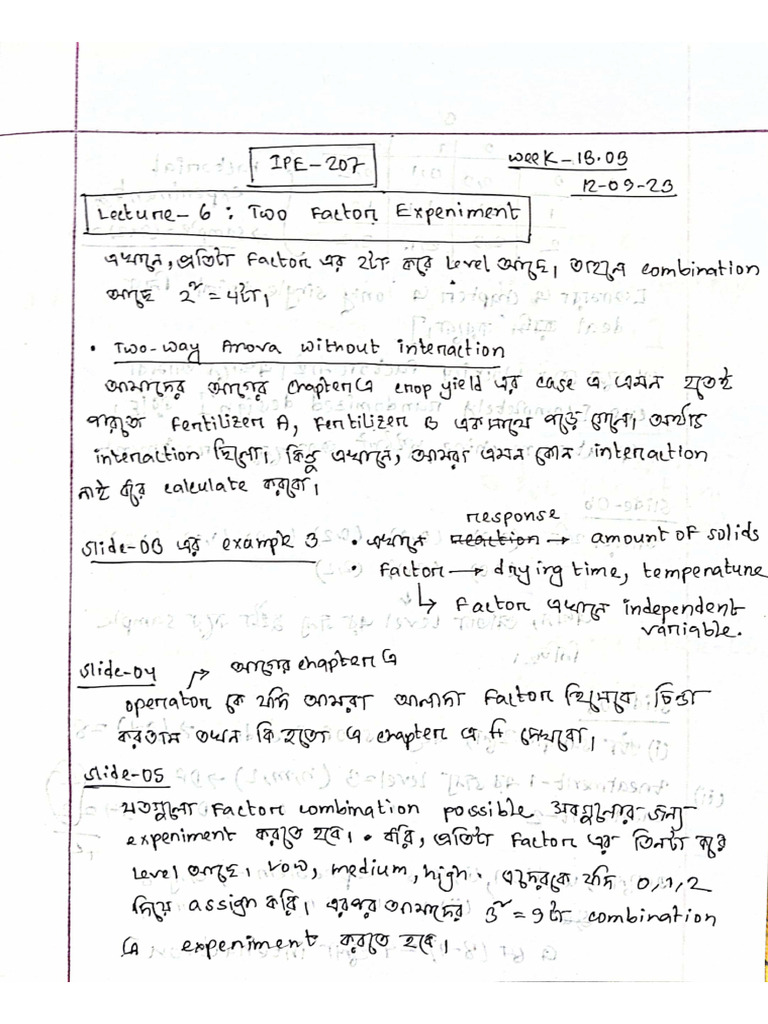 IPE-207
Week-13.03
12-09-23
Lecture-6: Two Factor Experiment
এখানে, প্রতিটা Factor এর ২টা করে Level আছে। তাহলে combination
আছে 2² = 4টা।
• Two-way Anova without interaction
আমাদের আগের chapter এ crop yield এর case এ এমন হতেই
পারতো Fertilizer A, Fertilizer B একসাথে পড়ে গেলো। অর্থাৎ
interaction ছিলো। কিন্তু এখানে, আমরা এমন কোন interaction
নাই ধরে calculate করবো।
response
Slide-03 এর example 3 • এখানে reaction → amount of solids
• Factor → drying time, temperature
↳ Factor এখানে independent
variable.
Slide-04 → আগের chapter এ
operator কে যদি আমরা আলাদা Factor হিসেবে চিন্তা
করতাম তখন কি হতো এ chapter এ তা দেখবো।
Slide-05
যতগুলো Factor combination possible সবগুলোর জন্য
experiment করতে হবে। • ধরি, প্রতিটা Factor এর তিনটা করে
Level আছে। Low, medium, high. এদেরকে যদি 0,1,2
দিয়ে assign করি। এরপর আমাদের 3² = 9টা combination
এ experiment করতে হবে।